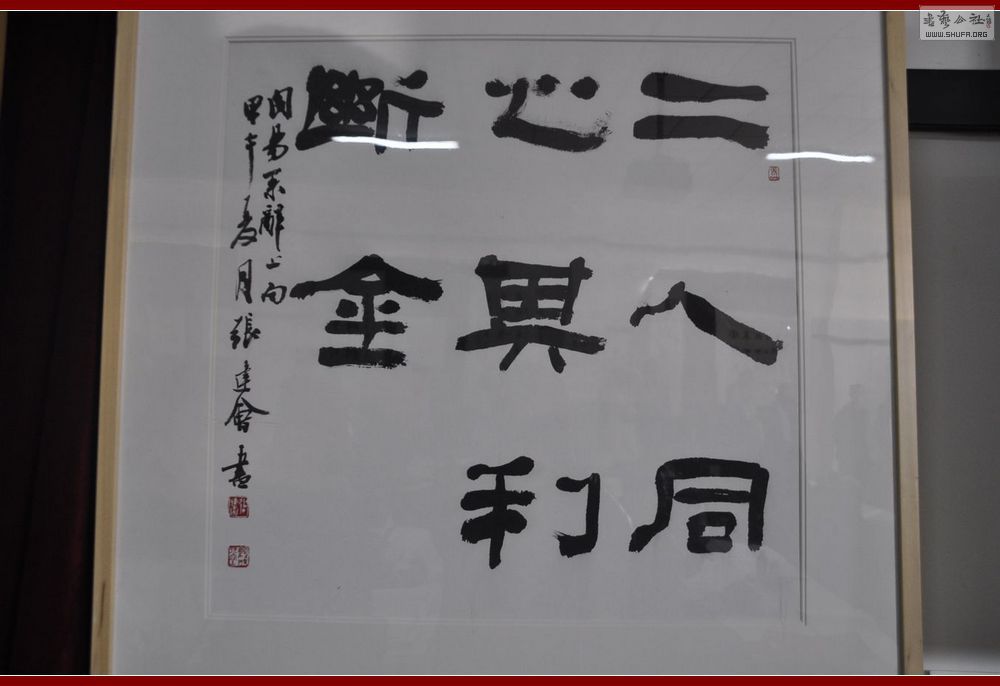 二人同
心其利
斷金
周易系辭上句
甲午夏月張建會書
书藝公社
WWW.SHUFA.ORG